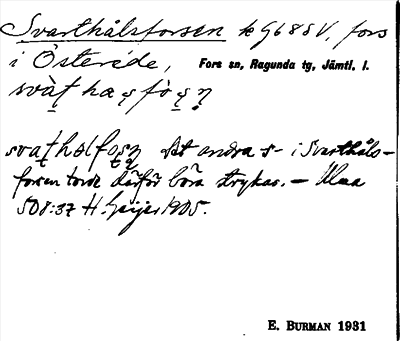 Svarthålsforsen k G68SV, fors
i Österede, Fors sn, Ragunda tg, Jämtl. l.
svàt hæ s fò s n
svathælfosn Det andra s- i Svarthåls-
forsen torde därför böra strykas. – Ulma
508:37 H. Geijer 1905.
E. BURMAN 1931